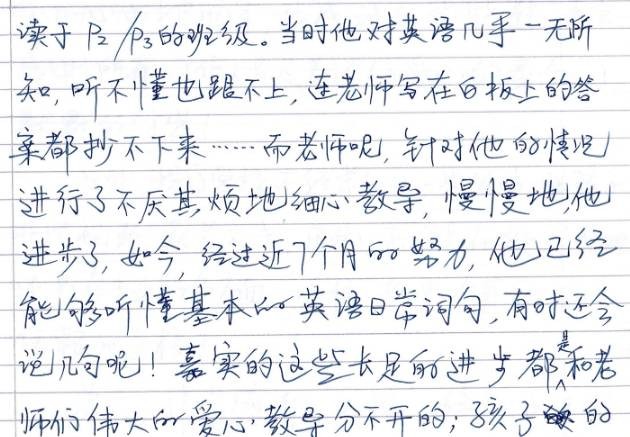 读于 P2/P3的班级。当时他对英语几乎一无所
知,听不懂也跟不上,连老师写在白板上的答
案都抄不下来……而老师呢,针对他的情况
进行了不厌其烦地细心教导,慢慢地,他
进步了,如今,经过近7个月的努力,他已经
能够听懂基本的英语日常词句,有时还会
说几句呢!嘉实的这些长足的进步都是和老
师们伟大的爱心教导分不开的;孩子的